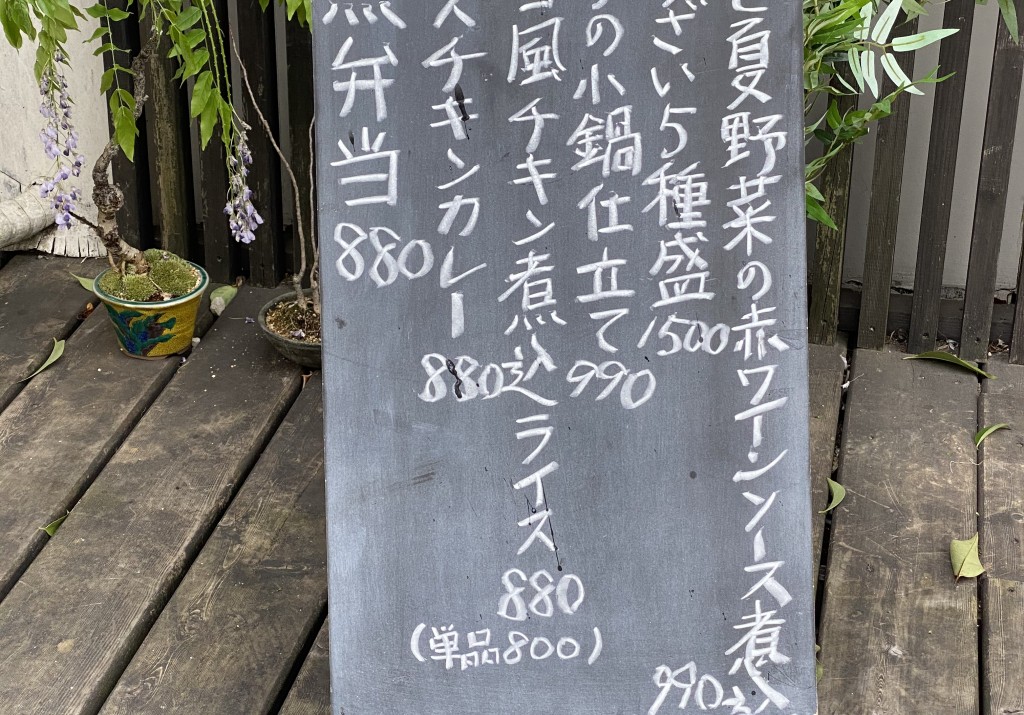 夏野菜の赤ワインソース煮込
990
ざい5種盛
1500
の小鍋仕立て
990
風チキン煮込ライス
880
(単品800)
スチキンカレー
880
弁当
880